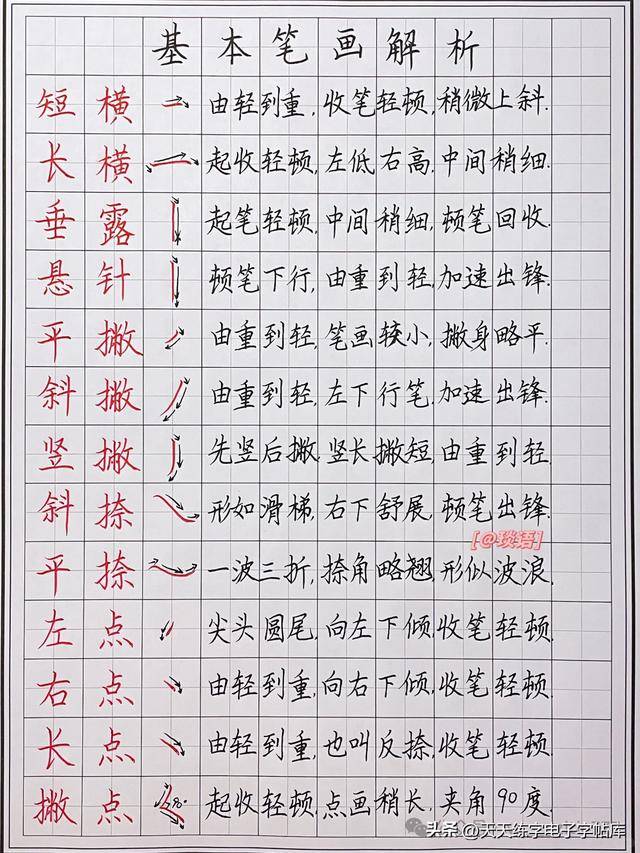 基本笔画解析
短横 由轻到重,收笔轻顿,稍微上斜.
长横 起收轻顿,左低右高,中间稍细.
垂露 起笔轻顿,中间稍细,顿笔回收.
悬针 顿笔下行,由重到轻,加速出锋.
平撇 由重到轻,笔画较小,撇身略平.
斜撇 由重到轻,左下行笔,加速出锋.
竖撇 先竖后撇,竖长撇短,由重到轻.
斜捺 形如滑梯,右下舒展,顿笔出锋.
[@琰语]
平捺 一波三折,捺角略翘,形似波浪.
左点 尖头圆尾,向左下倾,收笔轻顿.
右点 由轻到重,向右下倾,收笔轻顿.
长点 由轻到重,也叫反捺,收笔轻顿.
撇点 90° 起收轻顿,点画稍长,夹角90度.
头条 @天天练字电子字帖库